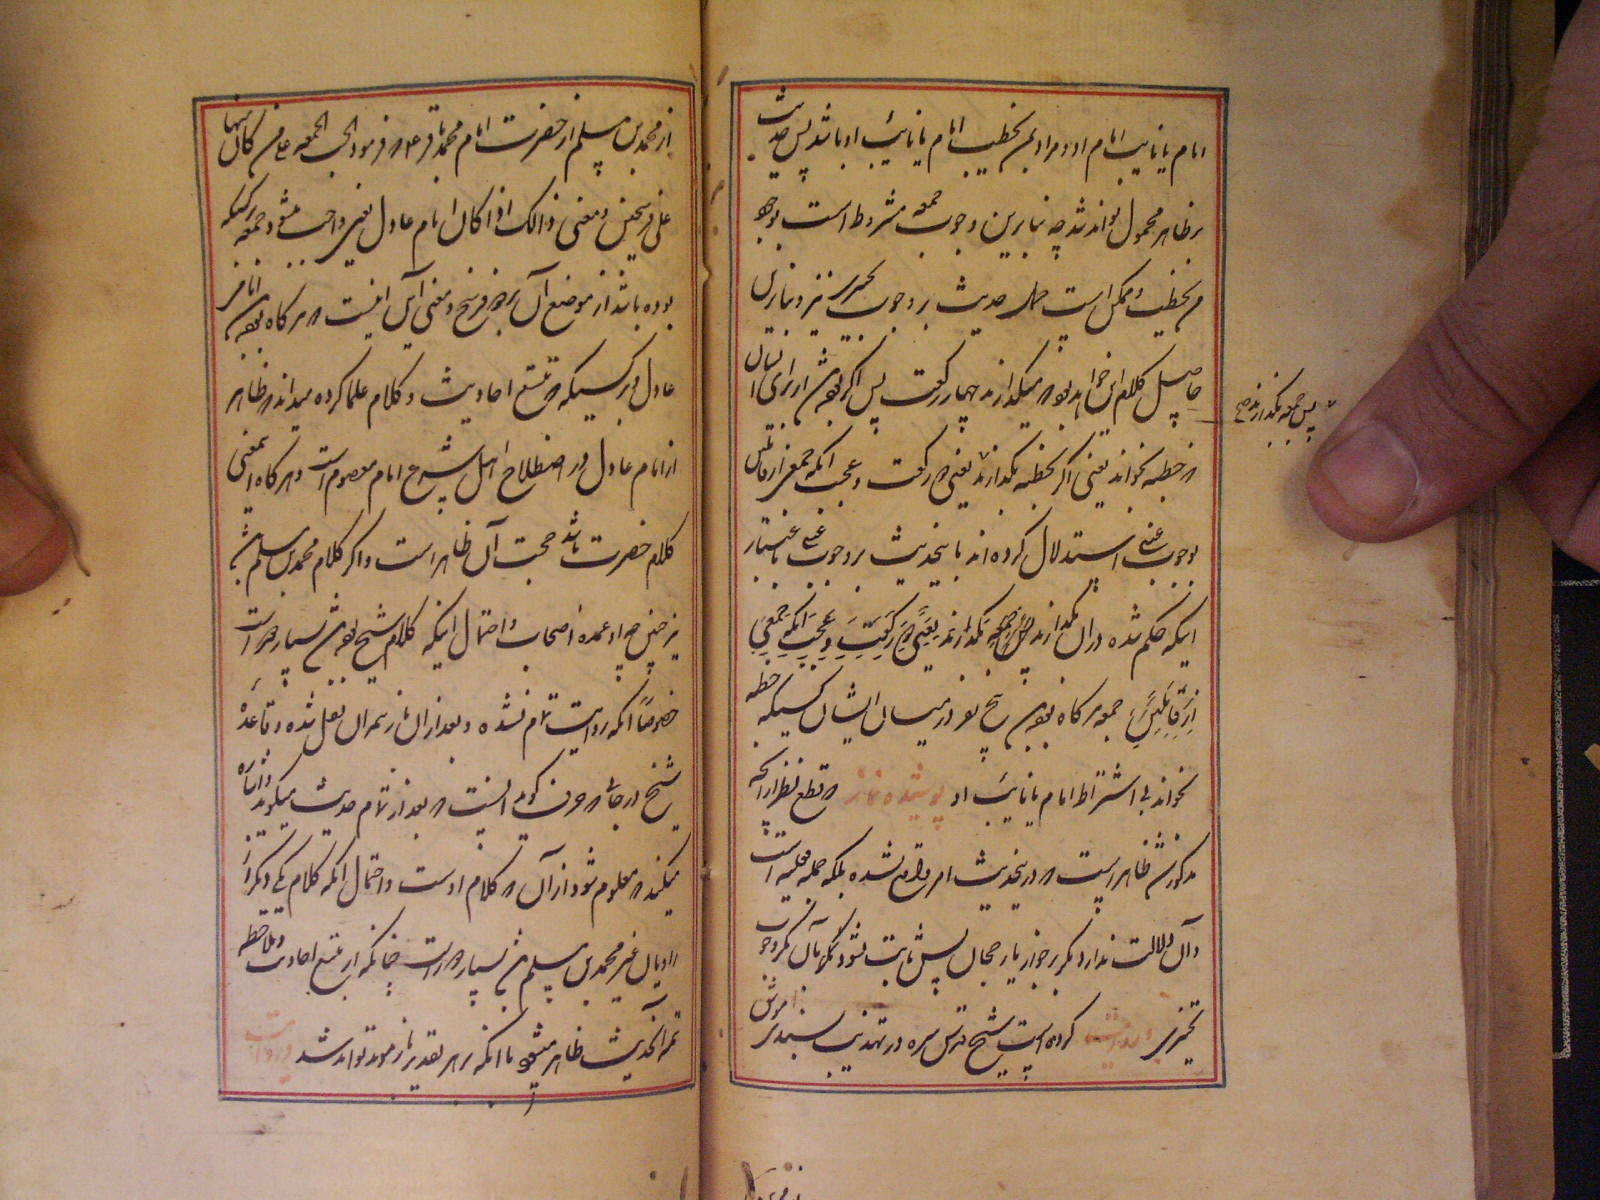 امام یا نایب امام او و مراد بمن یخطب امام یا نایب او باشد پس حدیث
بر ظاهر محمول تواند شد چه بنابرین وجوب جمعه مشروط است بوجود
من یخطب و ممکن است حمل حدیث بر وجوب تخییری نیز و بنابرین
حاصل کلام این خواهد بود که میگذارند چهار رکعت پس اگر بوده باشد از برای ایشان
که خطبه بخواند یعنی اگر خطبه بگذارند یعنی دو رکعت و عجب آنکه جمعی از قائلین
بوجوب عینی استدلال کرده‌اند باینحدیث بر وجوب عینی باعتبار
اینکه حکم شده در آن بگذاردن جمعه بگذارند یعنی دو رکعت و عجب آنکه جمعی
از قائلین جمعه هرگاه بوده باشد پنج نفر در میان ایشان کسیکه خطبه
بخواند بی اشتراط امام یا نایب او پوشیده نماند که قطع نظر از آنچه
مذکور شد ظاهر است که در اینحدیث امر واقع نشده بلکه جمله فعلیه است
و آن دلالت ندارد مگر بر جواز یا رجحان پس ثابت نشود بآن مگر وجوب
تخییری و روایت کرده است شیخ قدس سره در تهذیب بسند موثق
پس جمعه بگذارند صح
از محمد بن مسلم از حضرت امام محمد باقر ع که فرمود تجب الجمعه علی من کان منها
علی فرسخین و معنی ذالک اذا کان امام عادل یعنی واجب میشود جمعه بر کسیکه
بوده باشد از موضع آن بر دو فرسخ و معنی این اینست که هرگاه بوده باشد امام
عادل و بر کسیکه تتبع احادیث و کلام علما کرده میداند که ظاهر
از امام عادل در اصطلاح اهل شرع امام معصوم است و هرگاه این معنی
کلام حضرت باشد حجیت آن ظاهر است و اگر کلام محمد بن مسلم باشد
نیز چنین چه او عمده اصحاب و احتمال اینکه کلام شیخ بوده باشد بسیار دور است
خصوصا آنکه روایت تمام نشده و بعد از آن باز تتمه آن نقل شده و قاعده
شیخ در جائی که حرف گوید اینست که بعد از تمام حدیث میگوید و اشاره
میکند که معلوم شود از آن که کلام اوست و احتمال آنکه کلام یکی دیگر از
راویان غیر محمد بن مسلم باشد بسیار دور است چنانکه از تتبع احادیث و ملاحظه
تتمه آنحدیث ظاهر میشود با آنکه بر هر تقدیر باز موید تواند شد و روایت